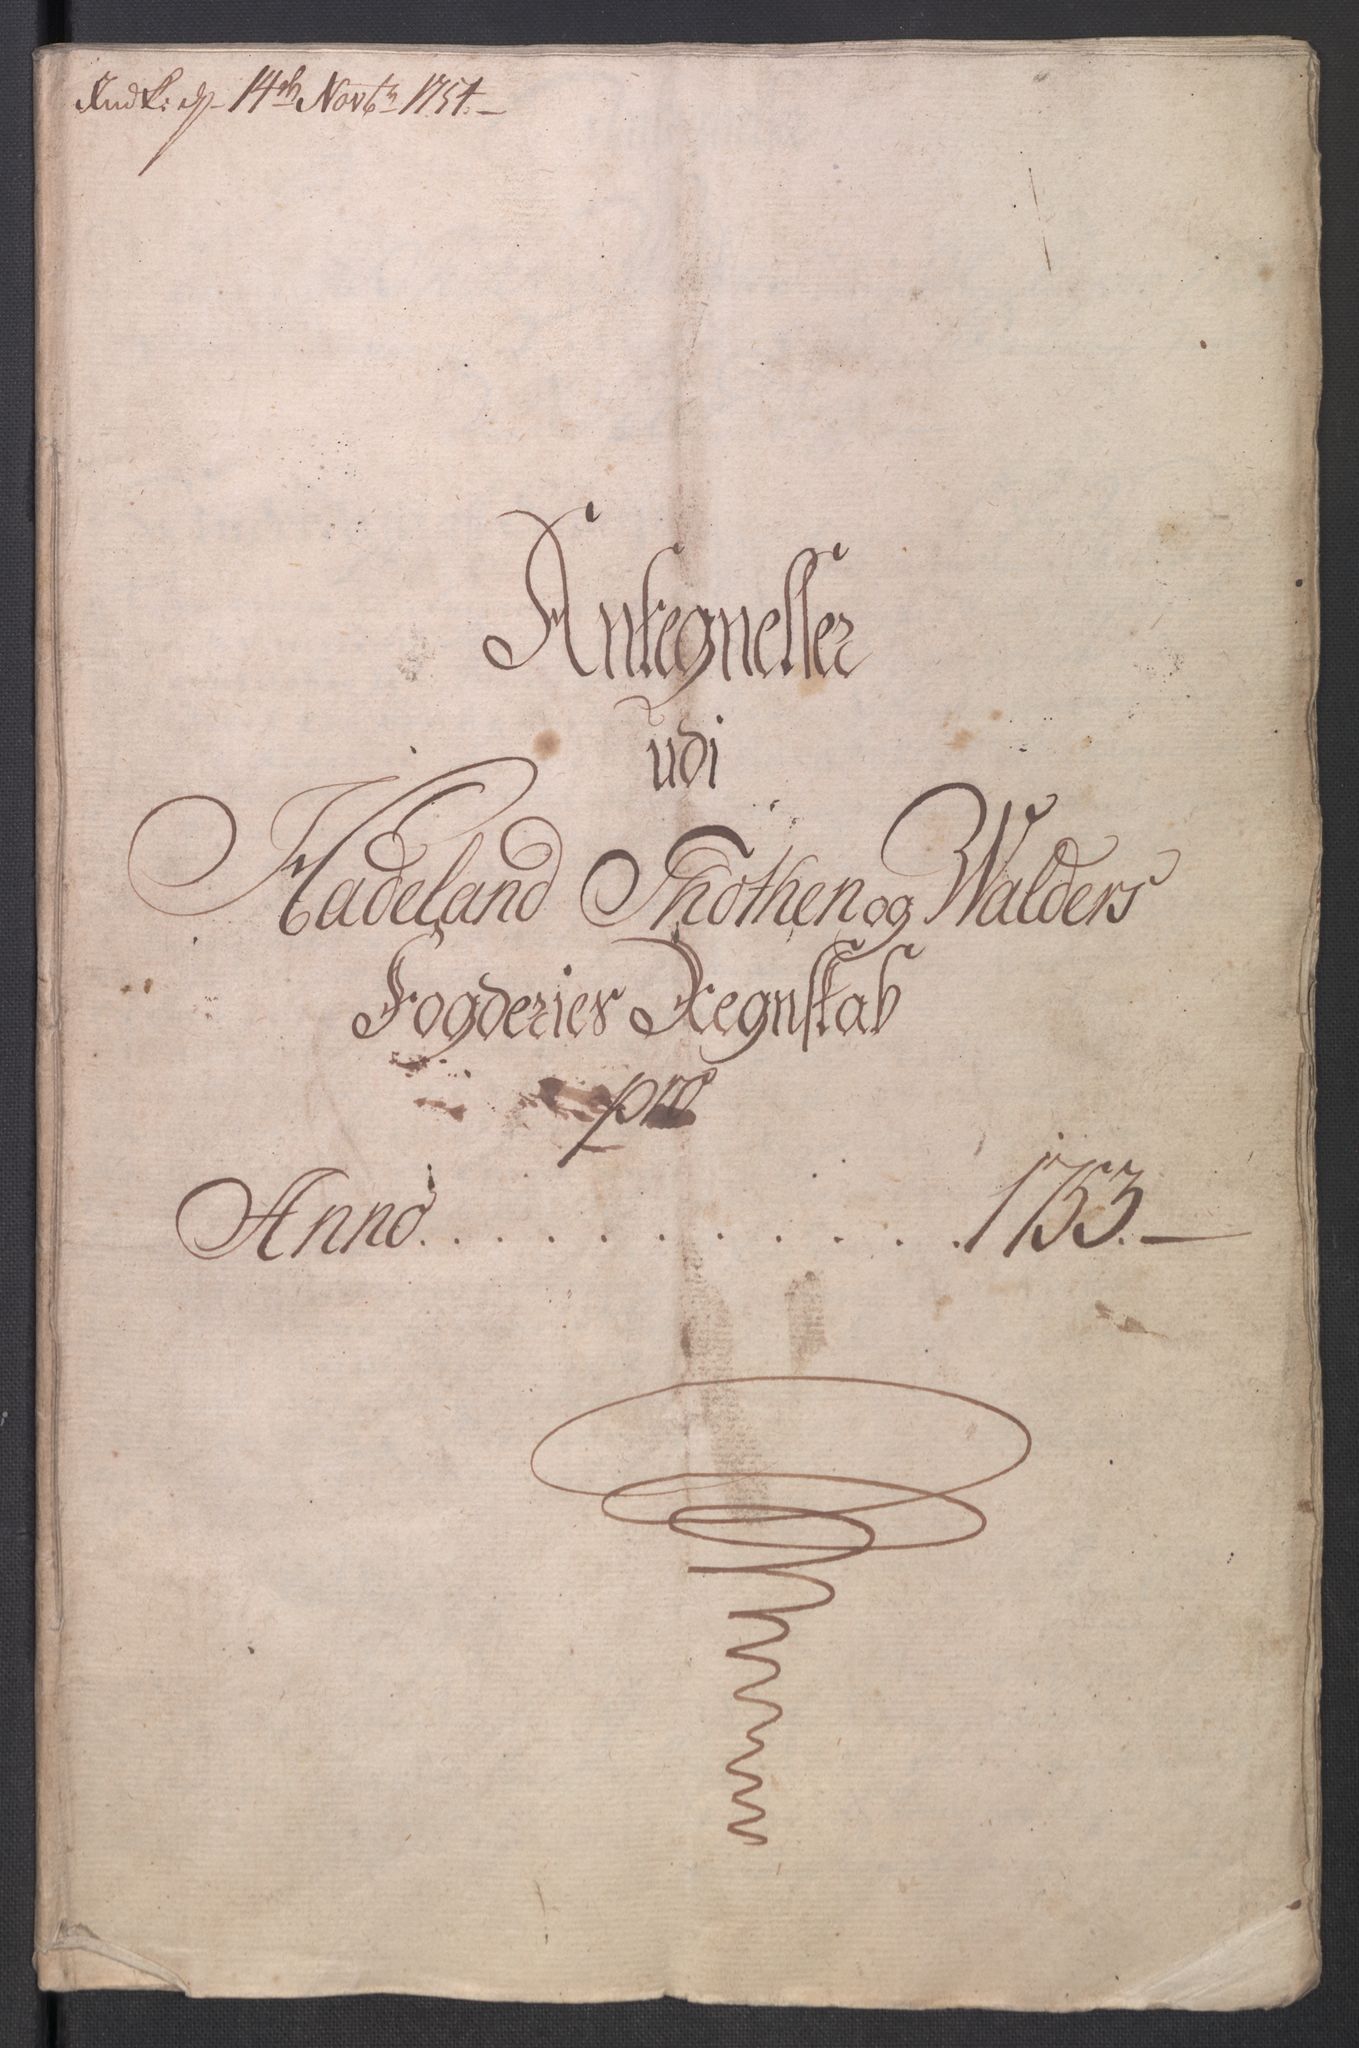 Indk: d. 14de Novbr 1754.
Antegnelser
udi
Hadeland Thothen og Walders
Fogderies Regnskab
pro
Anno . . . . . . . . . . . . 1753.